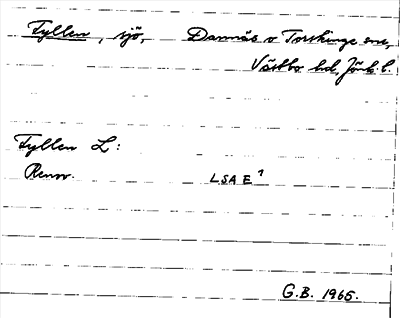 Fyllen, sjö, Dannäs o Torskinge snr,
Västbo hd, Jönk. l.
Fyllen L:
Renov. LSA E¹
G.B. 1965.